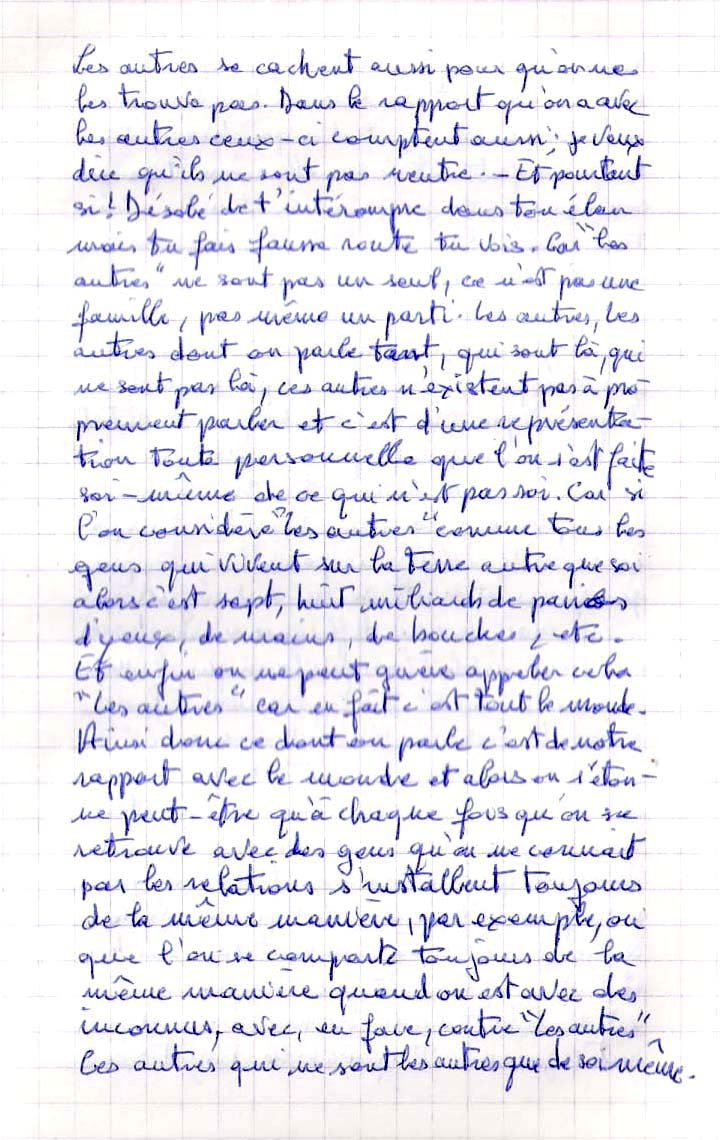 Les autres se cachent aussi pour qu'on ne
les trouve pas. Dans le rapport qu'on a avec
les autres ceux-ci comptent aussi; je veux
dire qu'ils ne sont pas neutre. - Et pourtant
si! Désolé de t'intérompre dans ton élan
mais tu fais fausse route tu vois. Car "les
autres" ne sont pas un seul, ce n'est pas une
famille, pas même un parti. Les autres, les
autres dont on parle tant, qui sont là, qui
ne sont pas là, ces autres n'existent pas à pro-
prement parler et c'est d'une représenta-
tion toute personnelle que l'on s'est faite
soi-même de ce qui n'est pas soi. Car si
l'on considère "les autres" comme tous les
gens qui vivent sur la terre autre que soi
alors c'est sept, huit milliards de paires
d'yeux, de mains, de bouches, etc.
Et enfin on ne peut guère appeler cela
"Les autres" car en fait c'est tout le monde.
Ainsi donc ce dont on parle c'est de notre
rapport avec le monde et alors on s'éton-
ne peut-être qu'à chaque fois qu'on se
retrouve avec des gens qu'on ne connait
pas les relations s'installent toujours
de la même manière, par exemple, ou
que l'on se comporte toujours de la
même manière quand on est avec des
inconnus, avec, en face, contre "Les autres"
Les autres qui ne sont les autres que de soi même.